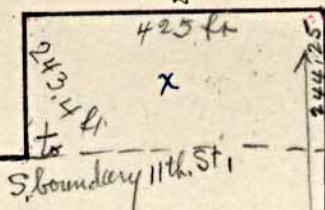 425 ft
243.4 ft.
to
244.25
x
S. boundary 11th. St.